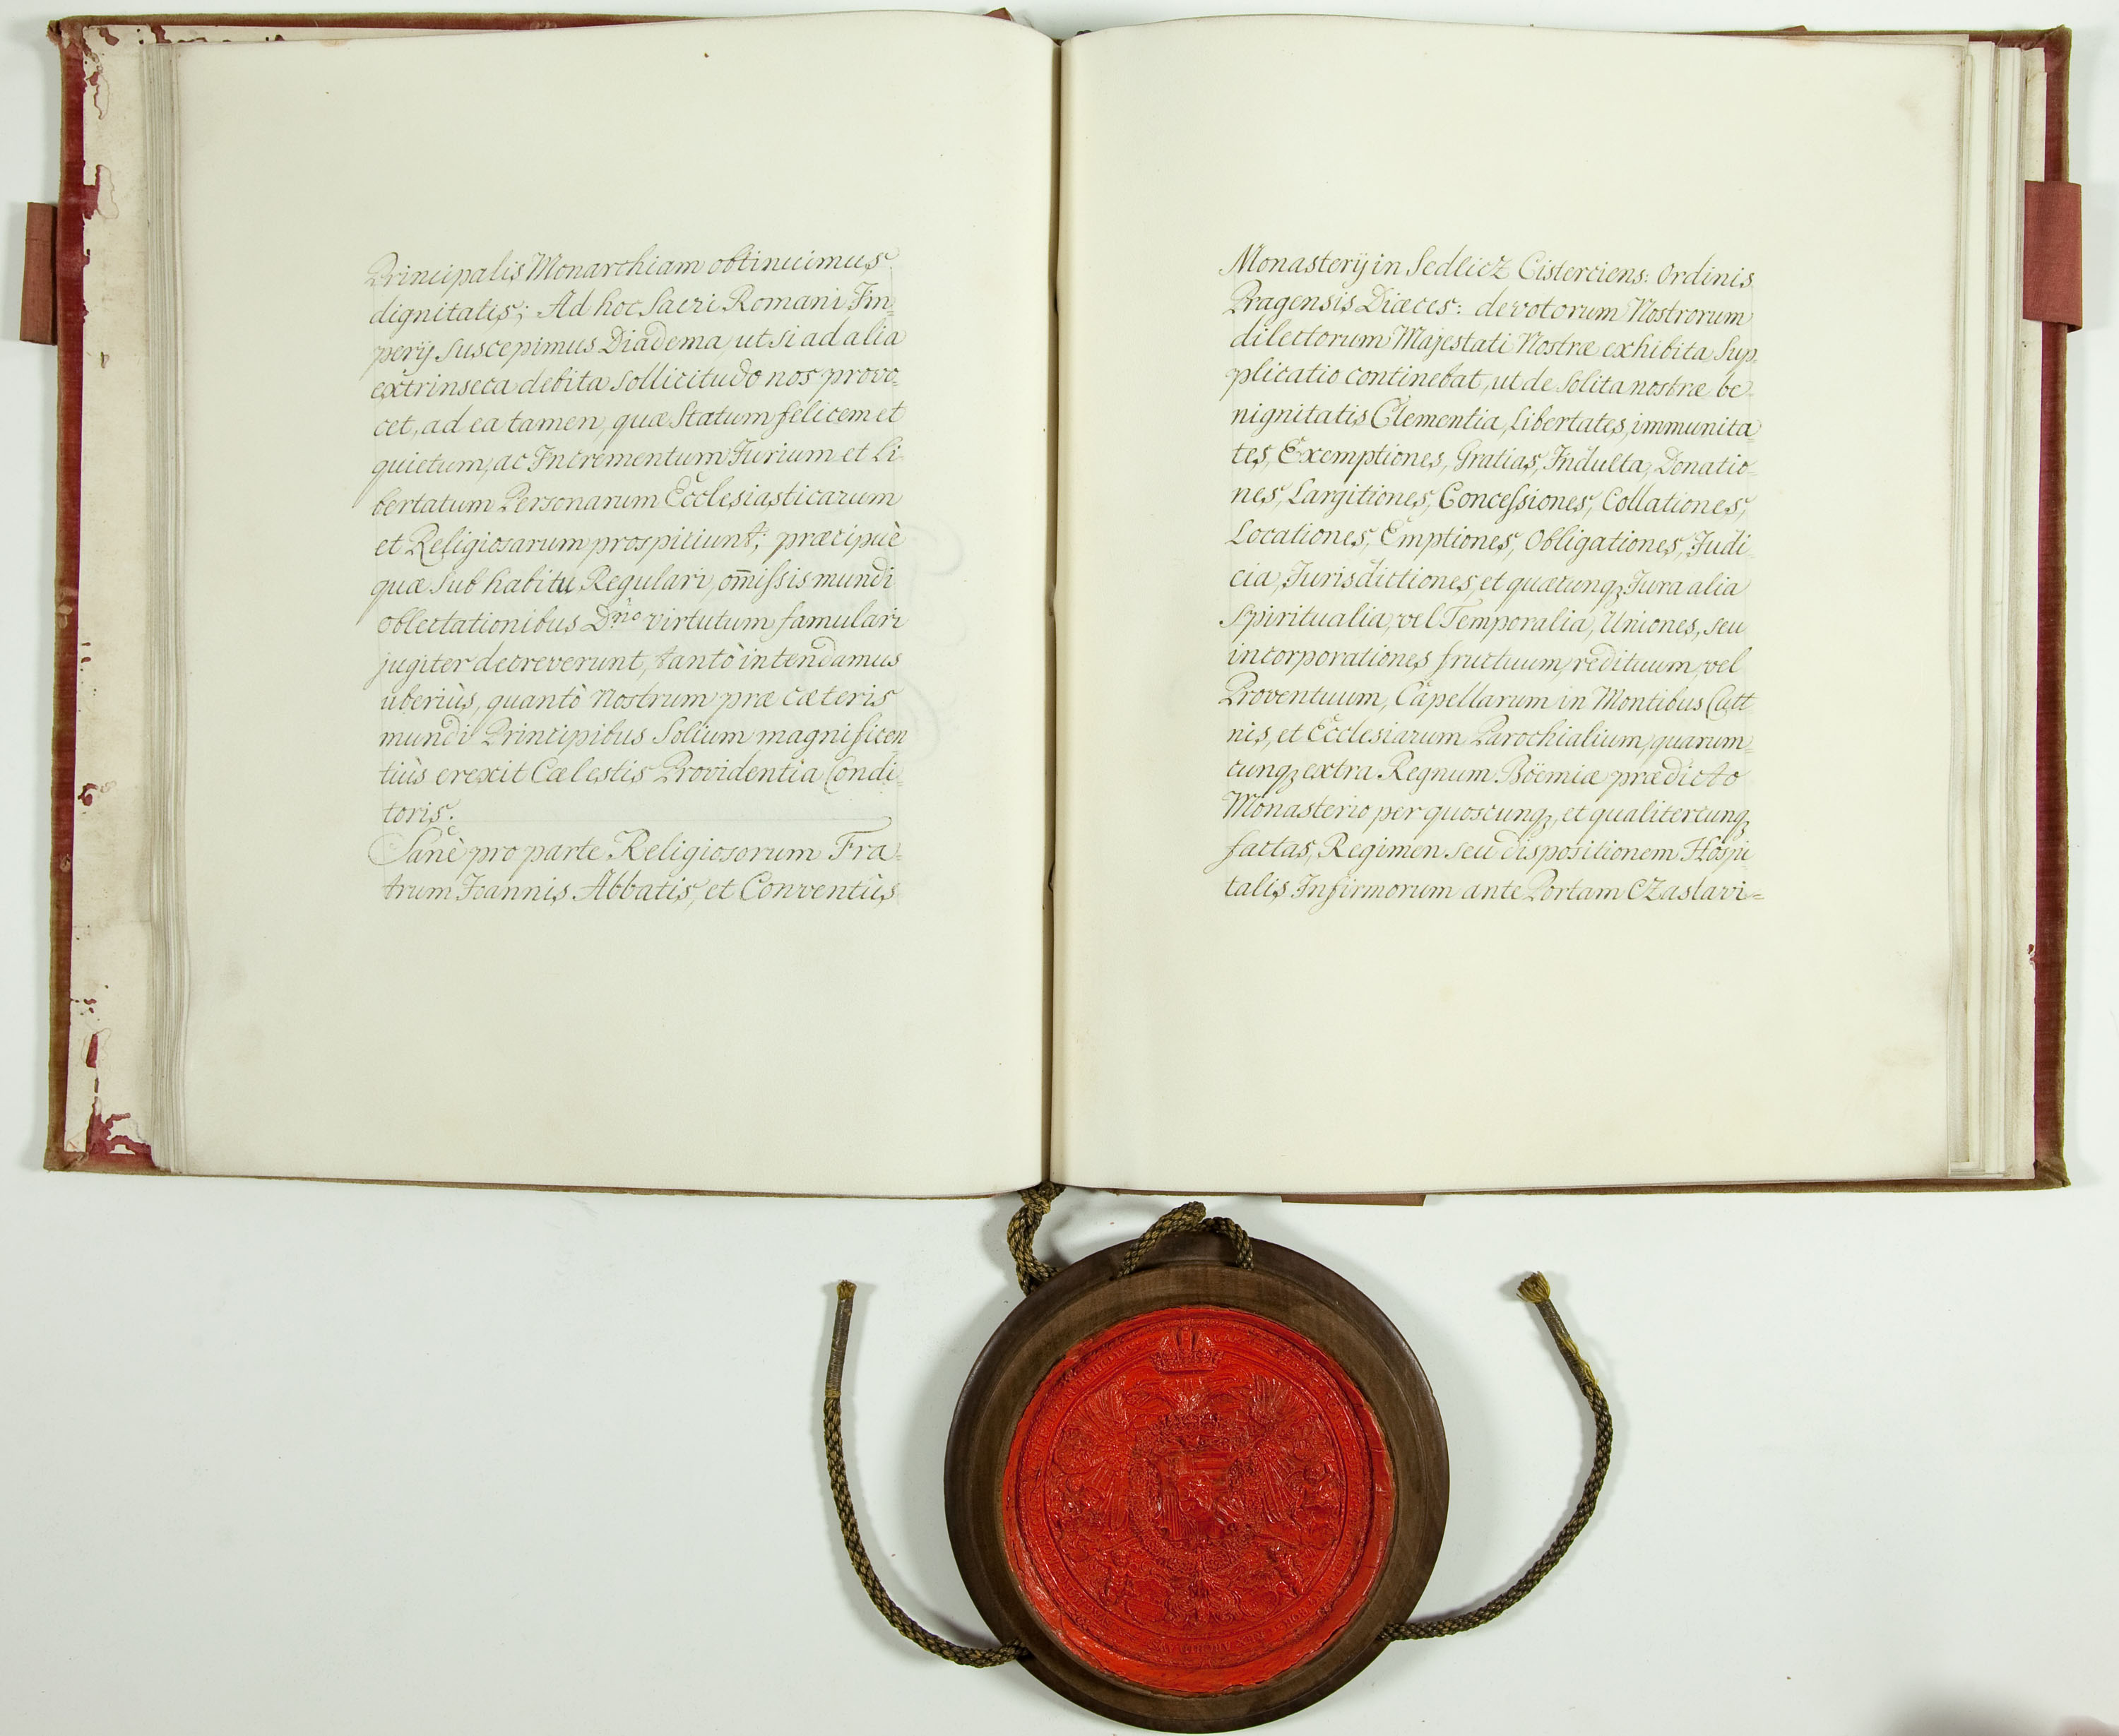 Principalis Monarchiam obtinuimus
dignitatis; Ad hoc Sacri Romani Im=
perij suscepimus Diadema, ut si ad alia
extrinseca debita sollicitudo nos provo=
cet, ad ea tamen, quæ Statum felicem et
quietum, ac Incrementum Jurium et Li
bertatum Personarum Ecclesiasticarum
et Religiosarum prospiciunt; præcipuè
quæ sub habitu Regulari, om̄issis mundi
oblectationibus Dno virtutum famulari
jugiter decreverunt, tantò intendamus
uberiùs, quantò Nostrum præ cæteris
mundi Principibus Solium magnificen
tiùs erexit Cælestis Providentia Condi=
toris.
Sanè pro parte Religiosorum Fra=
trum Joannis Abbatis, et Conventûs
Monasterij in Sedlicz Cisterciens: Ordinis
Pragensis Diæces: devotorum Nostrorum
dilectorum Majestati Nostræ exhibita Sup
plicatio continebat, ut de solita nostræ be
nignitatis Clementia, Libertates, immunita
tes, Exemptiones, Gratias, Indulta, Donatio=
nes, Largitiones, Concessiones, Collationes,
Locationes, Emptiones, Obligationes, Judi
cia, Jurisdictiones, et quæcunqꝫ Jura alia
Spiritualia, vel Temporalia, Uniones, seu
incorporationes fructuum, redituum, vel
Proventuum, Capellarum in Montibus Cutt
nis, et Ecclesiarum Parochialium, quarum=
cunqꝫ extra Regnum Böemiæ prædicto
Monasterio per quoscunqꝫ, et qualitercunqꝫ
factas, Regimen seu dispositionem Hospi
talis Infirmorum ante Portam Czaslavi=